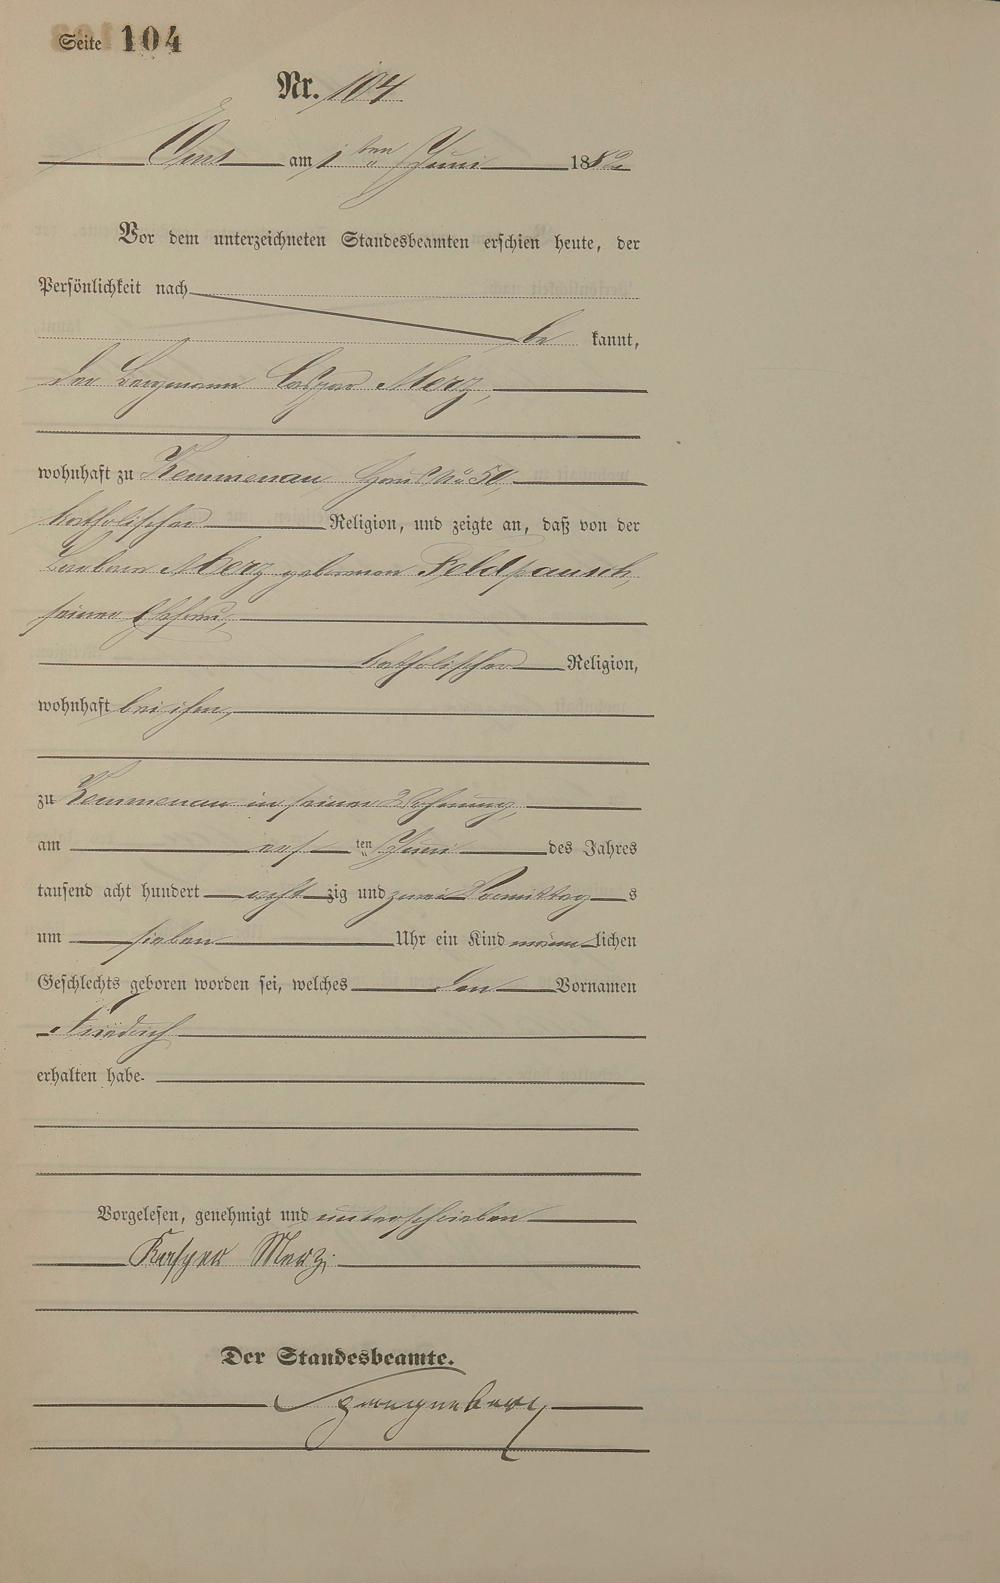 Seite 104
Nr. 104
Ems am 1ten Juni 1882
Vor dem unterzeichneten Standesbeamten erschien heute, der
Persönlichkeit nach
be kannt,
der Bergmann Caspar Merz,
wohnhaft zu Kemmenau, Haus No 50,
katholischer Religion, und zeigte an, daß von der
Barbara Merz geborenen Feldpausch,
seiner Ehefrau,
katholischer Religion,
wohnhaft bei ihm,
zu Kemmenau in seiner Wohnung,
am ersten Juni des Jahres
tausend acht hundert achtzig und zwei Vormittags
um sieben Uhr ein Kind männlichen
Geschlechts geboren worden sei, welches den Vornamen
Friedrich
erhalten habe.
Vorgelesen, genehmigt und unterschrieben
Kasper Merz.
Der Standesbeamte.